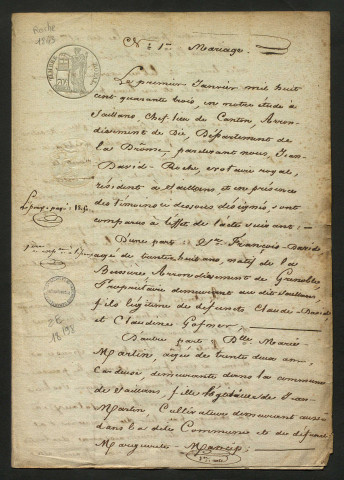 Roche
1843
N.° 1.er Mariage.
Le premier Janvier mil huit
cent quarante trois, en notre étude à
Saillans, Chef lieu de Canton, Arron-
dissement de Die, Département de
la Drôme; pardevant nous, Jean
David-Roche, notaire royal,
résident à Saillans, et en présence
des témoins ci dessous désignés, sont
comparus à l'effet de l'acte suivant:
D'une part S.r François David
agé de trente huit ans, natif de la
Arrondissement de Grenoble
Propriétaire demeurant au dit Saillans,
fils légitime de défunts Claude David
et Claudine
D'autre part D.lle Marie
Martin, agée de trente deux ans,
demeurante dans la commune
de Saillans, fille légitime de Jean
Martin Cultivateur demeurant aussi
dans la dite Commune et de défunte
Marguerite
2E
18198